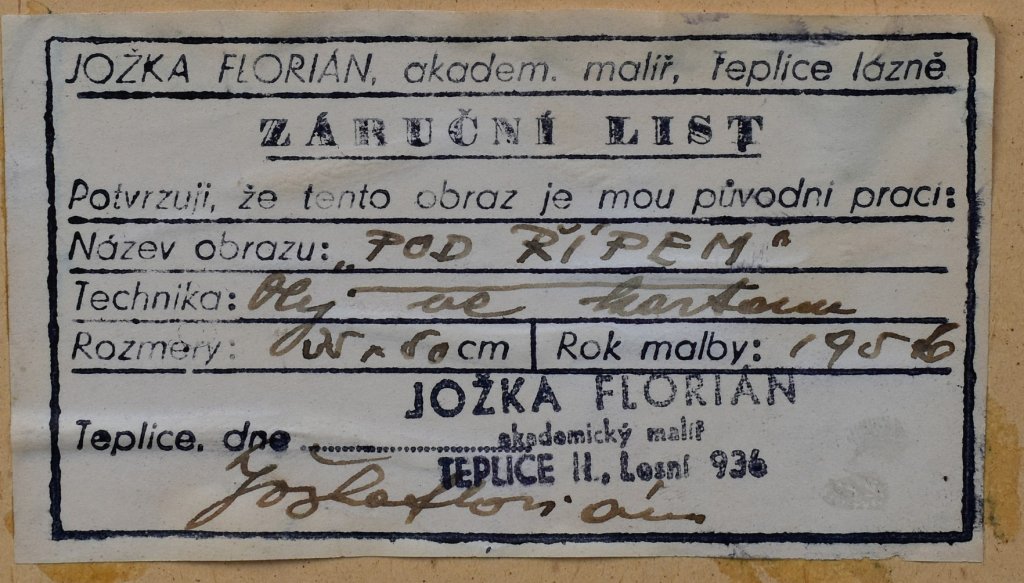 JOŽKA FLORIÁN, akadem. malíř, Teplice lázně
ZÁRUČNÍ LIST
Potvrzuji, že tento obraz je mou původní prací:
Název obrazu: „POD ŘÍPEM“
Technika: Olej kartonu
Rozměry: cm Rok malby: 1956
JOŽKA FLORIÁN
Teplice, dne .................. akademický malíř
TEPLICE II., Lesní 936
Jožka Florián